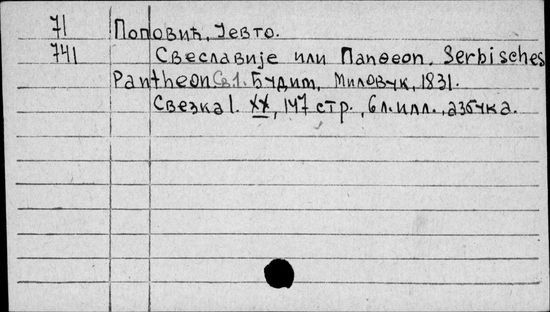 71 Поповић, Јевто.
741 Свеславије или Панѳеон. Serbisches
Pantheon Св.1. Будим, Миловук, 1831.
Свезка 1. XX, 147 стр., 6 л. илл., азбука.